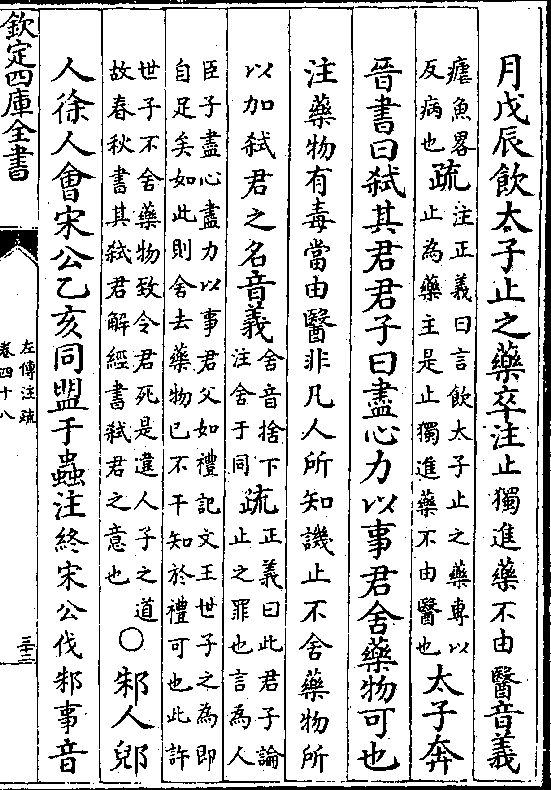 月戊辰飲太子止之藥卒注止獨進藥不由醫音義
瘧魚畧
反病也疏注正義曰言飲太子止之藥專以
止為藥主是止獨進藥不由醫也太子奔
晉書曰弑其君君子曰盡心力以事君舍藥物可也
注藥物有毒當由醫非凡人所知譏止不舍藥物所
以加弑君之名音義舍音捨下
注舍于同疏正義曰此君子論
止之罪也言為人
臣子盡心盡力以事君父如禮記文王世子之為即
自足矣如此則舍去藥物已不干知於禮可也此許
世子不舍藥物致令君死是違人子之道
故春秋書其弑君解經書弑君之意也○邾人郳
人徐人會宋公乙亥同盟于蟲注終宋公伐邾事音
欽定四庫全書
左傳注疏
卷四十八
三十三